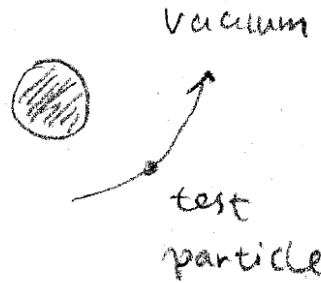 vacuum
test
particle